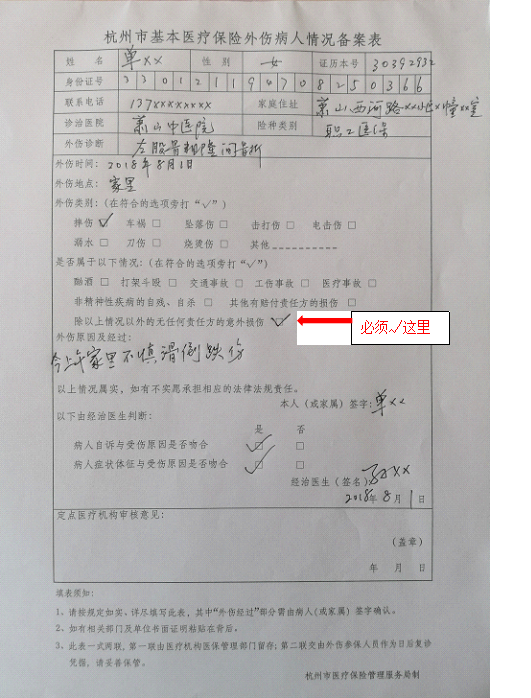 杭州市基本医疗保险外伤病人情况备案表
姓 名 单×× 性 别 女 证历本号 30392932
身份证号 330121194708250366
联系电话 137×××××××× 家庭住址 萧山西河路××北×幢××室
诊治医院 萧山中医院 险种类别 职工医保
外伤诊断 左股骨粗隆间骨折
外伤时间：2018年8月1日
外伤地点：家里
外伤类别：(在符合的选项旁打“√”)
摔伤☑ 车祸□ 坠落伤□ 击打伤□ 电击伤□
溺水□ 刀伤□ 烧烫伤□ 其他__________
是否属于以下情况：(在符合的选项旁打“√”)
酗酒□ 打架斗殴□ 交通事故□ 工伤事故□ 医疗事故□
非精神性疾病的自残、自杀□ 其他有赔付责任方的损伤□
除以上情况以外的无任何责任方的意外损伤☑
必须√这里
外伤原因及经过：
今上午家里不慎滑倒跌伤
以上情况属实，如有不实愿承担相应的法律法规责任。
本人（或家属）签字：单××
以下由经治医生判断：
是 否
病人自诉与受伤原因是否吻合 ☑ □
病人症状体征与受伤原因是否吻合 ☑ □
经治医生（签名） ××
2018年8月1日
定点医疗机构审核意见：
（盖章）
年 月 日
填表须知：
1、请按规定如实、详尽填写此表，其中“外伤经过”部分需由病人(或家属)签字确认。
2、如有相关部门及单位书面证明粘贴在背后。
3、此表一式两联，第一联由医疗机构医保管理部门留存；第二联交由外伤参保人员作为日后复诊
凭据，请妥善保管。
杭州市医疗保险管理服务局制